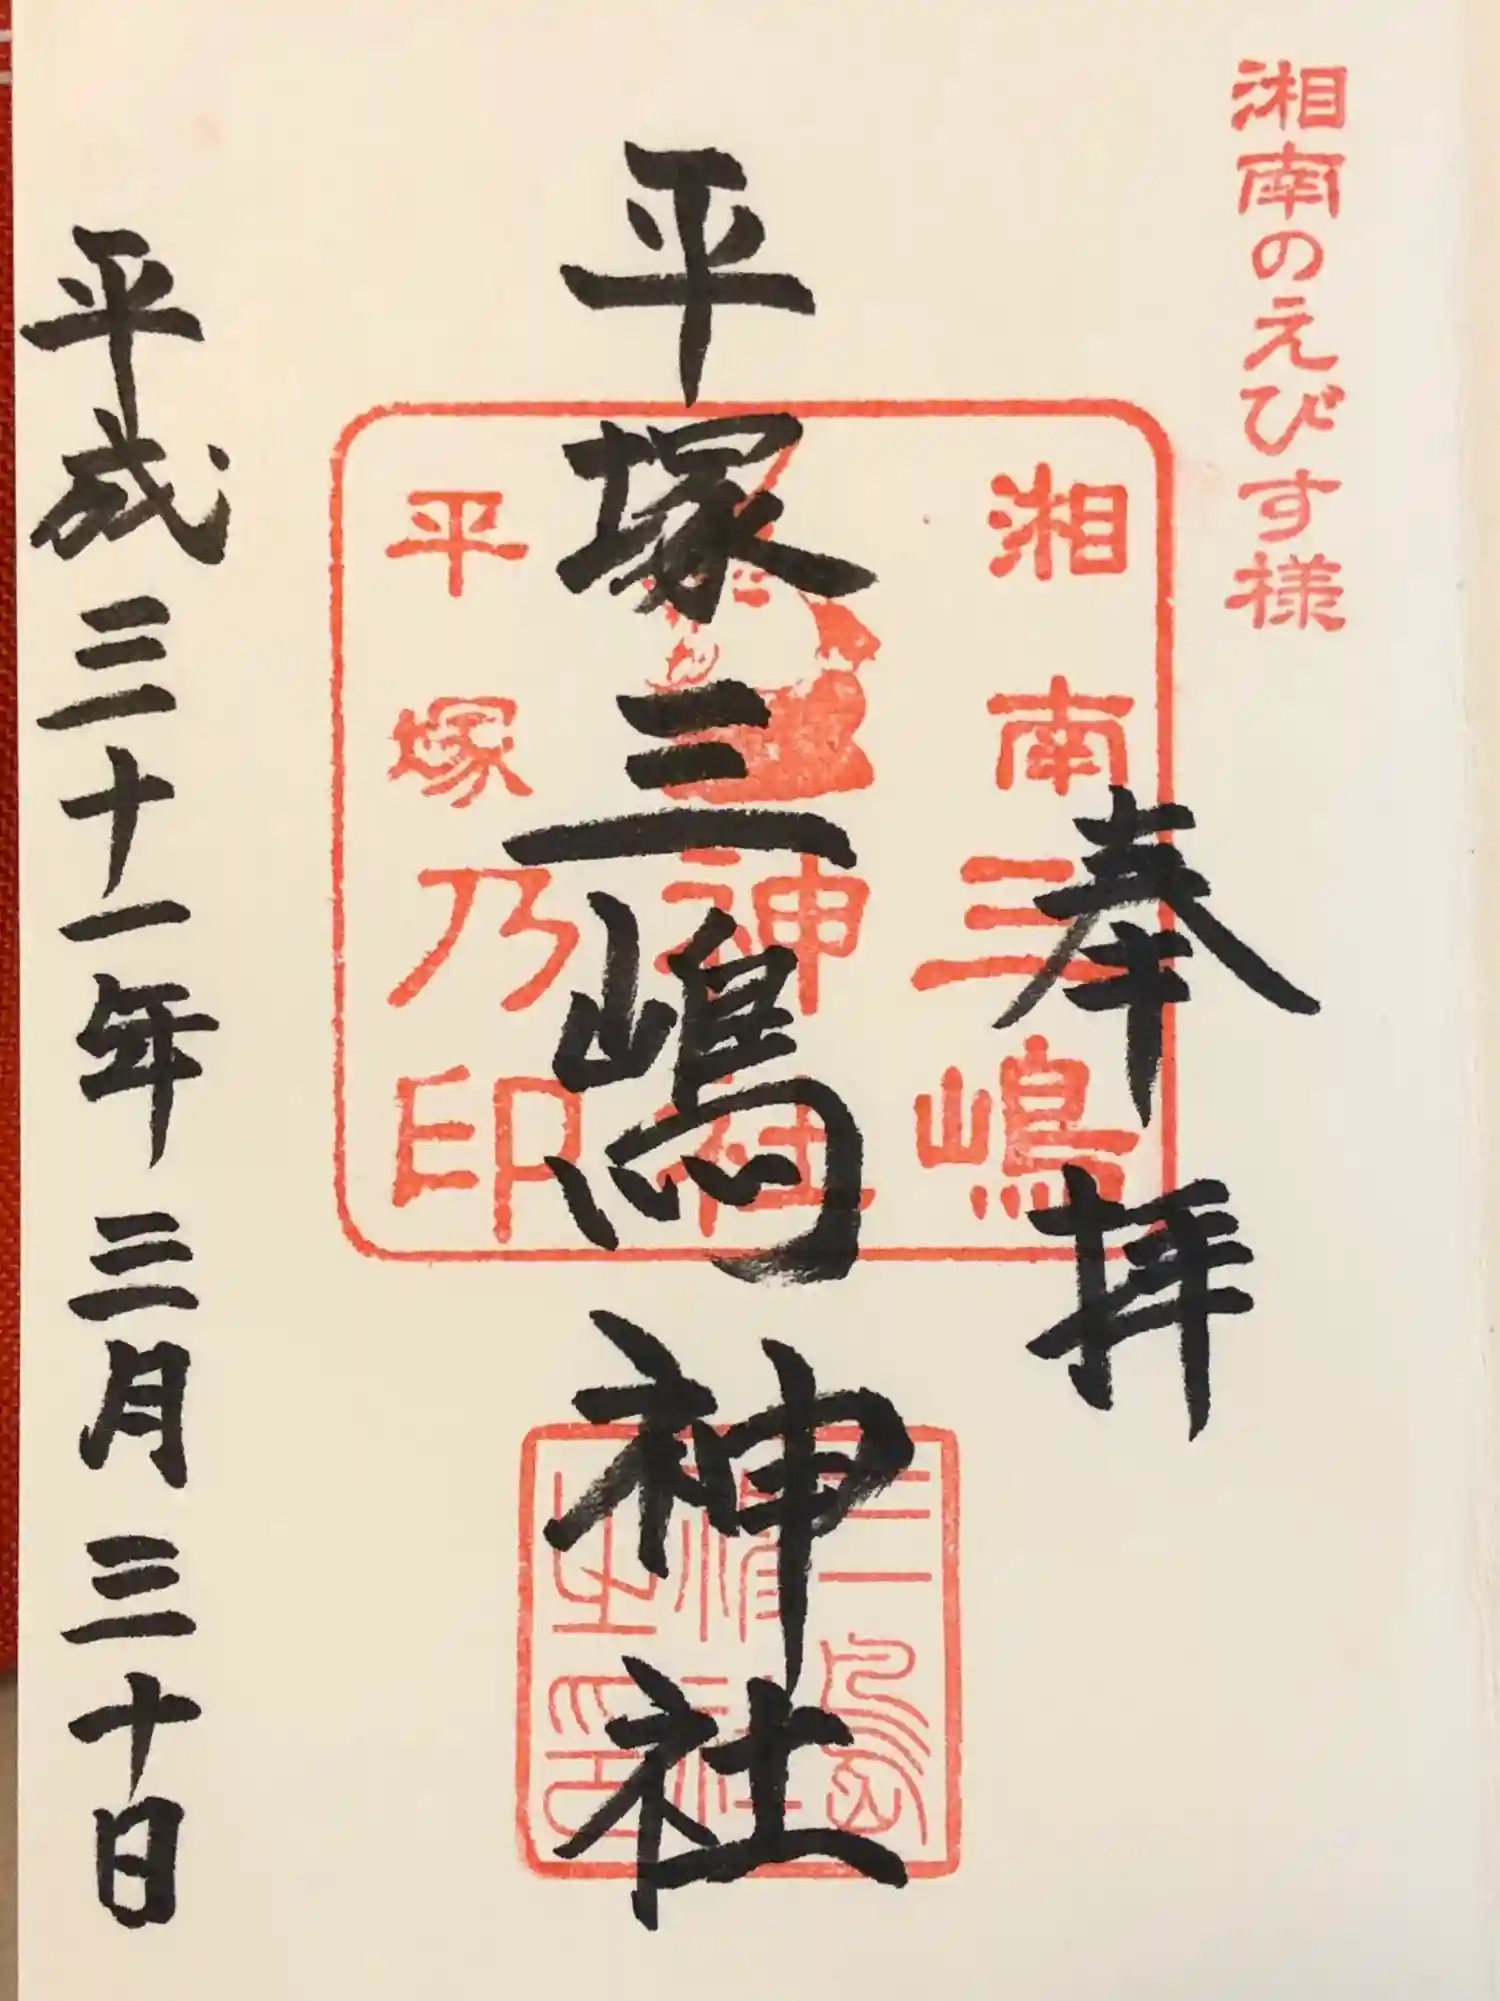 湘南のえびす様
奉拝
湘南三嶋
神社
平塚乃印
平塚三嶋神社
三島
神社
之印
平成三十一年三月三十日